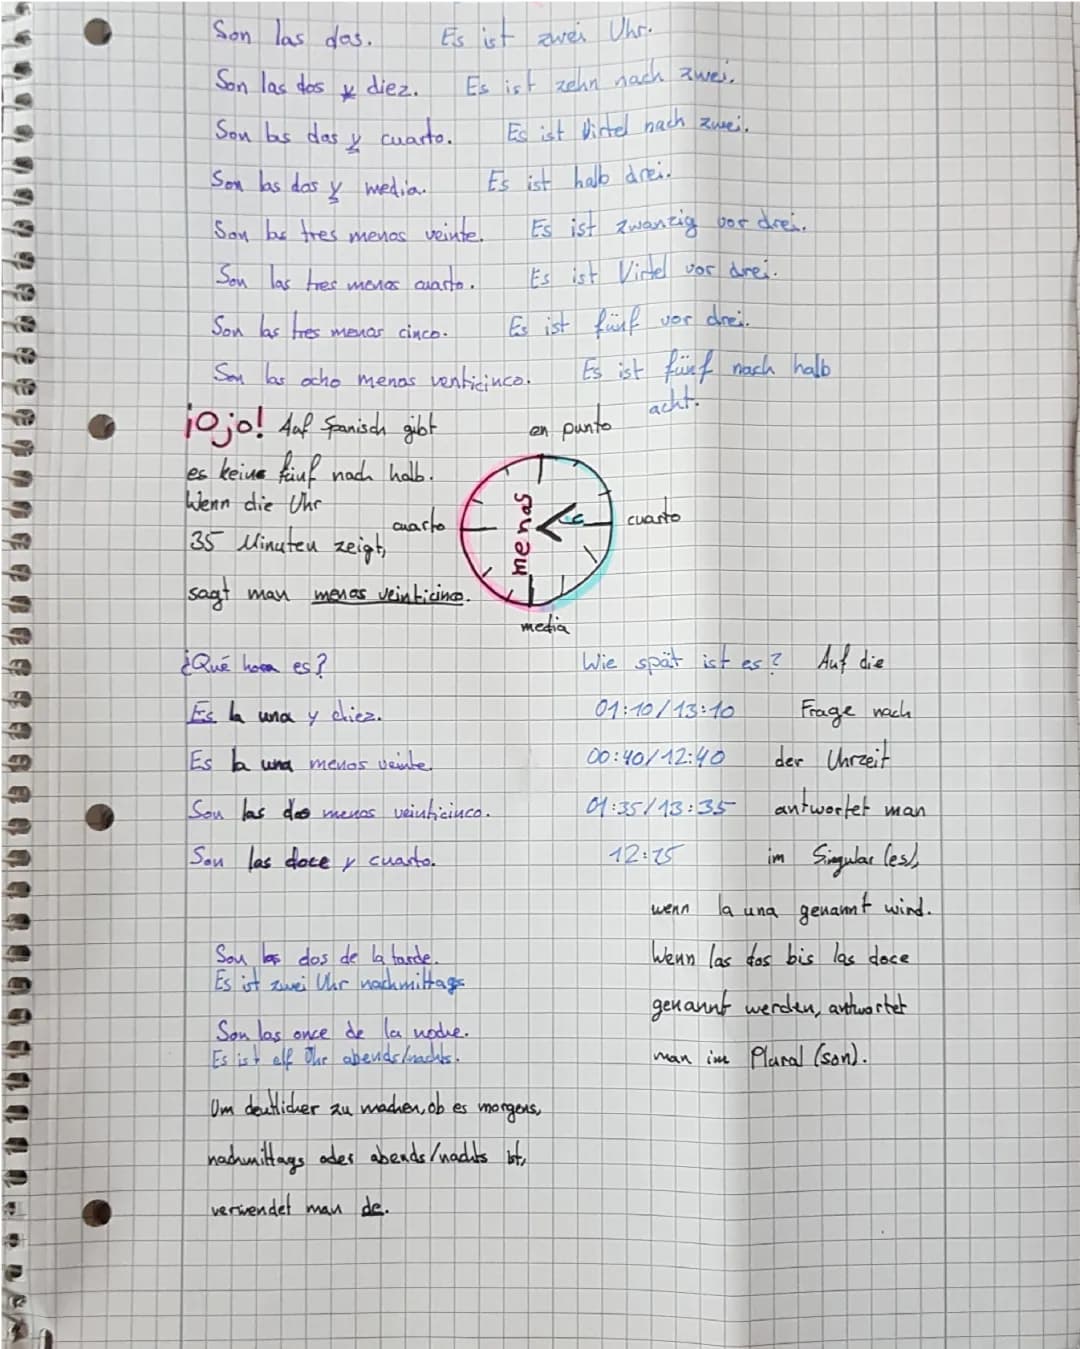 Son las dos. Es ist zwei Uhr.
Son las dos y diez. Es ist zehn nach zwei.
Son las dos y cuarto. Es ist Virtel nach zwei.
Son las dos y media. Es ist halb drei.
Son las tres menos veinte. Es ist zwanzig vor drei.
Son las tres menos cuarto. Es ist Virtel vor drei.
Son las tres menos cinco. Es ist fünf vor drei.
Son las ocho menos venticinco. Es ist fünf nach halb
acht.
¡Ojo! Auf Spanisch gibt
es keine fünf nach halb.
Wenn die Uhr
35 Minuten zeigt,
sagt man menos veinticinco.
en punto
cuarto
menos
y
cuarto
media
¿Qué hora es? Wie spät ist es?
Es la una y diez. 01:10/13:10
Es la una menos veinte. 00:40/12:40
Son las dos menos veinticinco. 01:35/13:35
Son las doce y cuarto. 12:15
Auf die
Frage nach
der Uhrzeit
antwortet man
im Singular (es),
wenn la una genannt wird.
Wenn las dos bis las doce
genannt werden, antwortet
man im Plural (son).
Son las dos de la tarde.
Es ist zwei Uhr nachmittags
Son las once de la noche.
Es ist elf Uhr abends/nachts.
Um deutlicher zu machen, ob es morgens,
nachmittags oder abends/nachts ist,
verwendet man de.